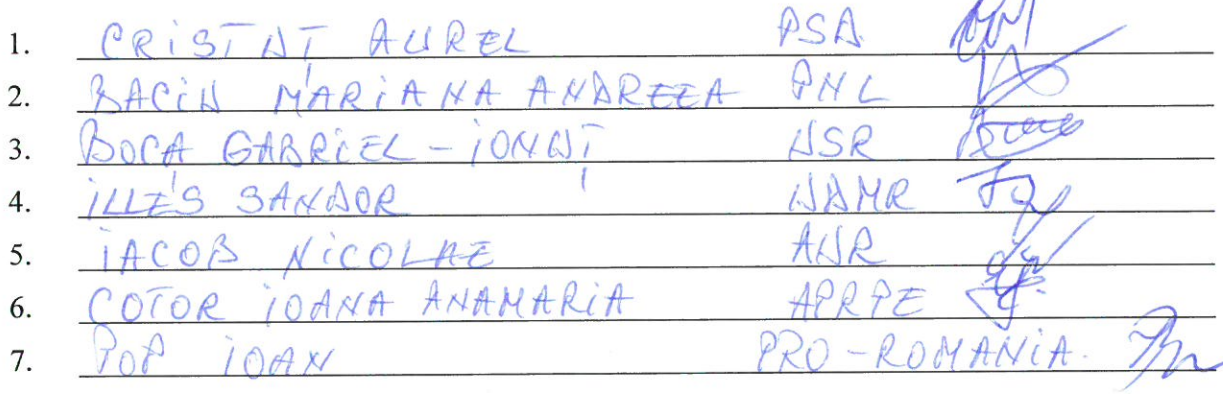 1. CRISTUȚ AUREL PSD
2. BACIU MARIANA ANDREEA PNL
3. BOCA GABRIEL-IONUȚ USR
4. ILLÉS SANDOR UDMR
5. IACOB NICOLAE AUR
6. COTOR IOANA ANAMARIA APRPE
7. POP IOAN PRO-ROMANIA.